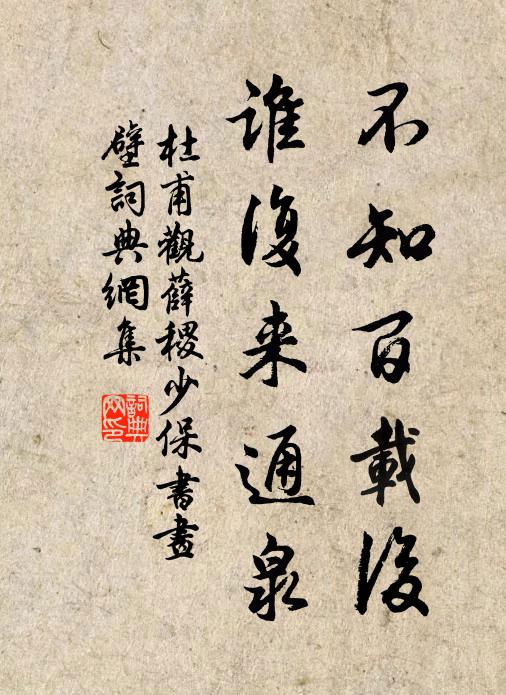 不知百載後
誰復来通泉
杜甫觀薛稷少保書畫
壁詞典網集
詞典網印